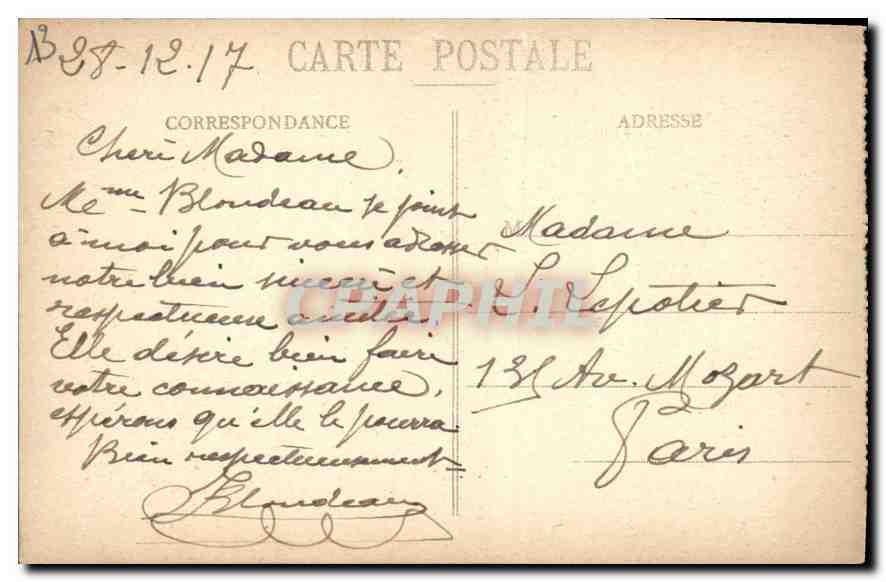 28-12-17
CARTE POSTALE
CORRESPONDANCE
Cheré Madame,
Me mme Blondeau se joint
à moi pour vous adresser
notre bien sincère et
respectueuse amitié.
Elle désire bien faire
votre connaissance,
espérons qu'elle le pourra
Bien respectueusement
Blondeau
ADRESSE
Madame
L. Lepotier
Av. Mozart
Paris
CPAPHIL